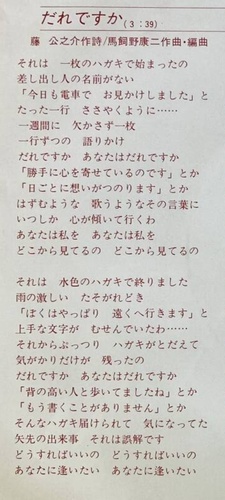 だれですか(3:39)
藤 公之介作詩/馬飼野康二作曲・編曲
それは 一枚のハガキで始まったの
差し出し人の名前がない
「今日も電車で お見かけしました」と
たった一行 ささやくように……
一週間に 欠かさず一枚
一行ずつの 語りかけ
だれですか あなたはだれですか
「勝手に心を寄せているのです」とか
「日ごとに想いがつのります」とか
はずむような 歌うようなその言葉に
いつしか 心が傾いて行くわ
あなたは私を あなたは私を
どこから見てるの どこから見てるの
それは 水色のハガキで終りました
雨の激しい たそがれどき
「ぼくはやっぱり 遠くへ行きます」と
上手な文字が むせんでいたわ……
それからぷっつり ハガキがとだえて
気がかりだけが 残ったの
だれですか あなたはだれですか
「背の高い人と歩いてましたね」とか
「もう書くことがありません」とか
そんなハガキ届けられて 気になってた
矢先の出来事 それは誤解です
どうすればいいの どうすればいいの
あなたに逢いたい あなたに逢いたい